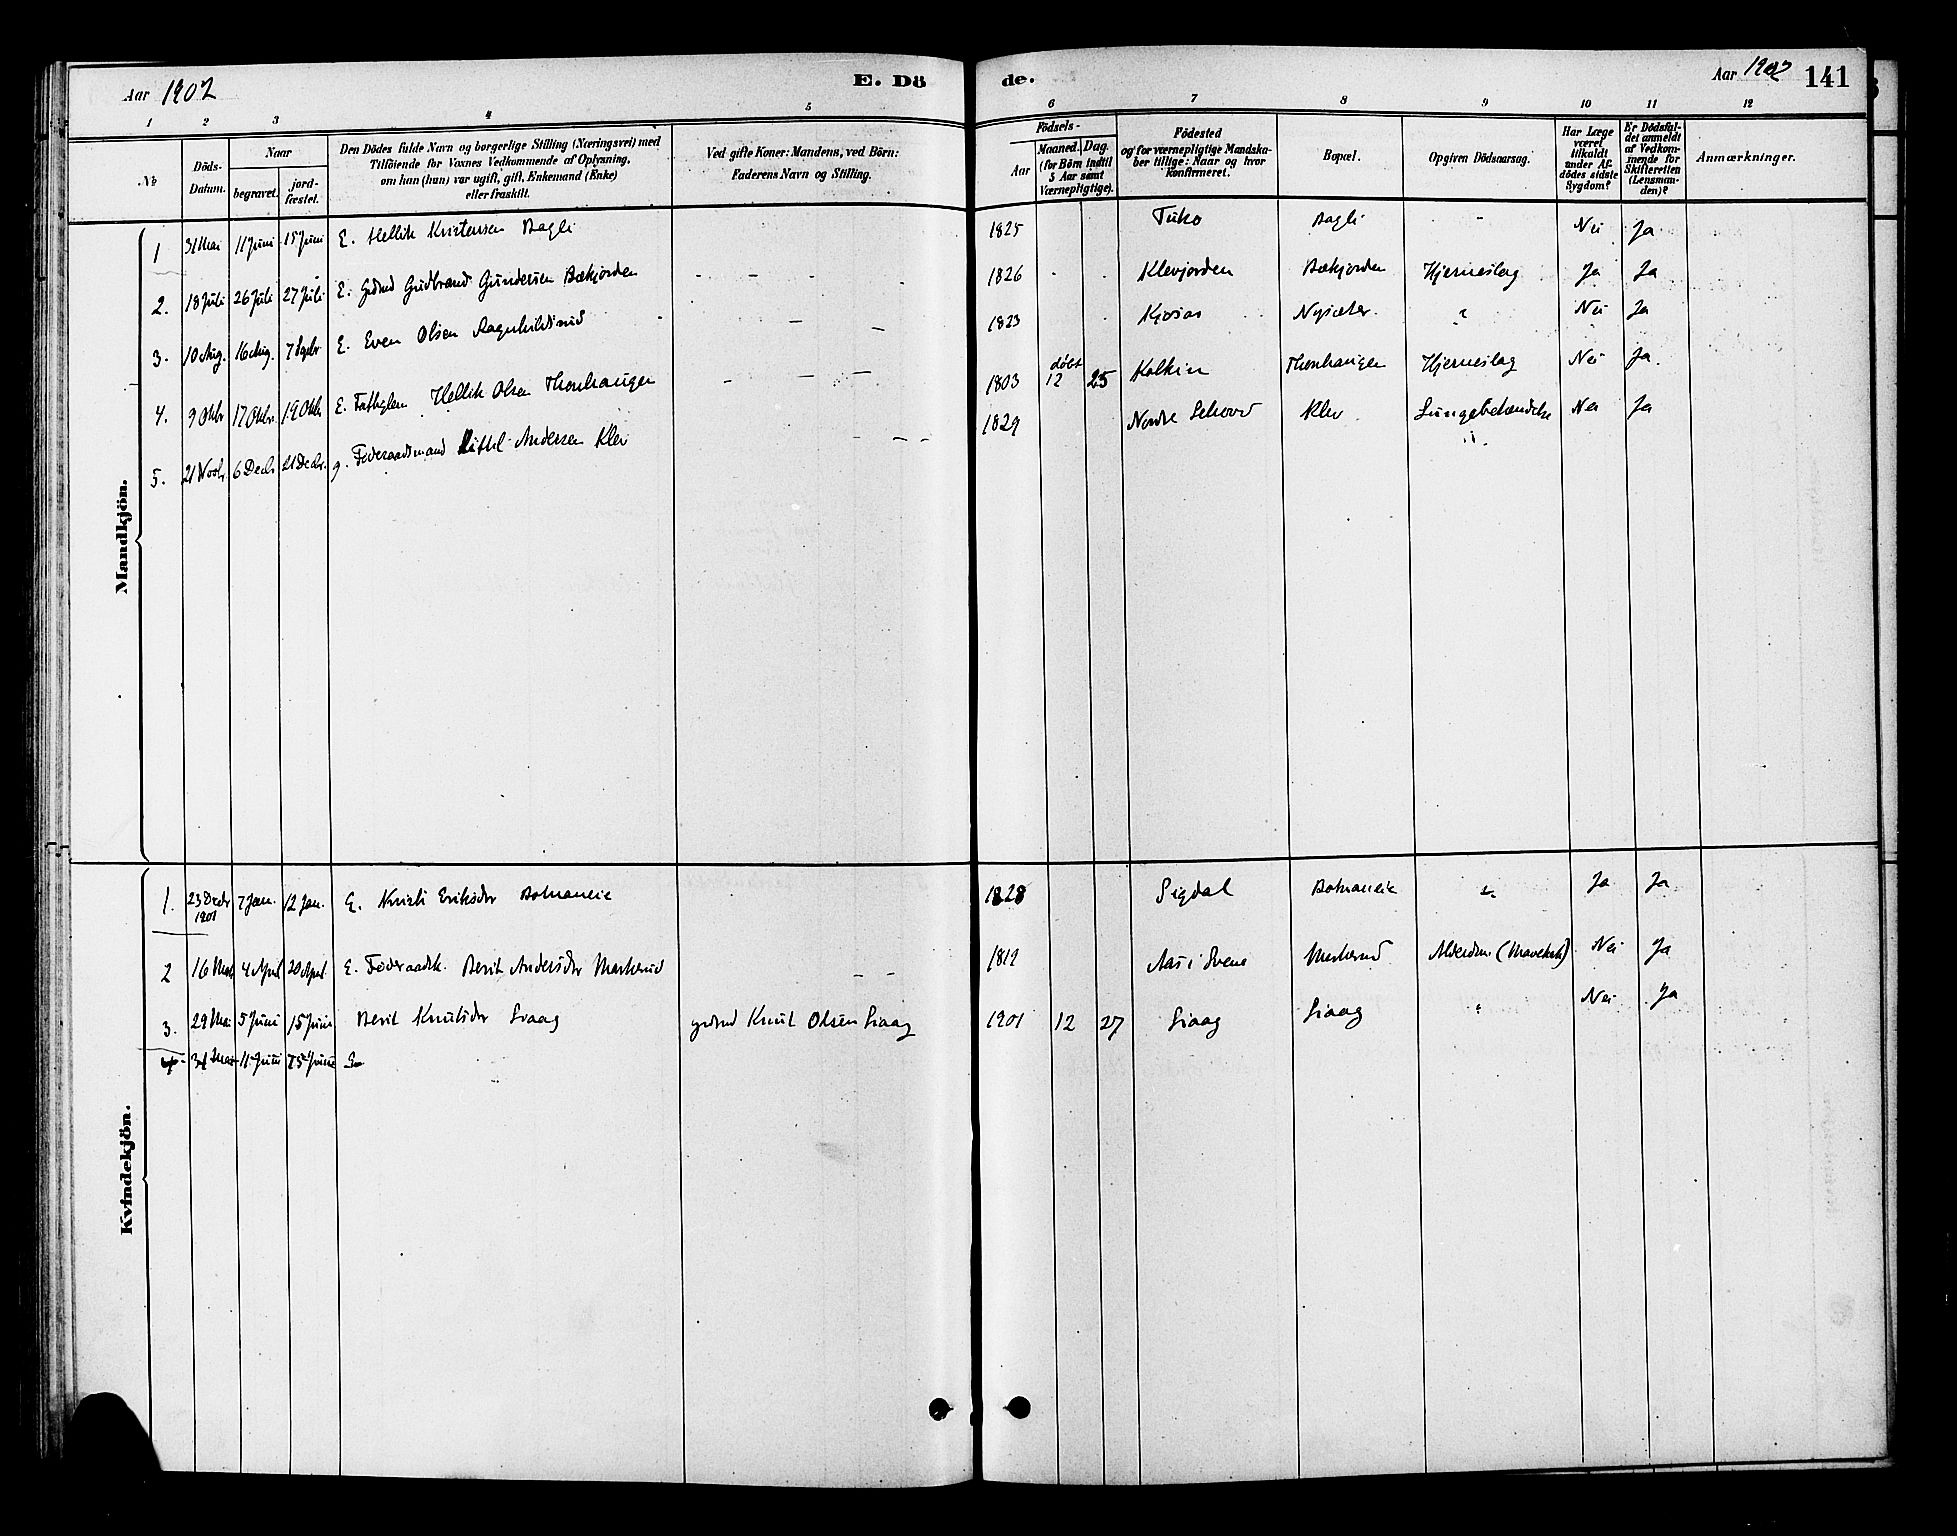 Aar 1902
E. Dö
de.
Aar 1902
141
1 2 3 4 5 6 7 8 9 10 11 12
No
Döds-Datum.
Naar
begravet.
jord-fæstet.
Den Dödes fulde Navn og borgerlige Stilling (Næringsvei) med
Tilföiende for Voxnes Vedkommende af Oplysning,
om han (hun) var ugift, gift, Enkemand (Enke)
eller fraskilt.
Ved gifte Koner: Mandens, ved Börn:
Faderens Navn og Stilling.
Födsels-
Aar
Maaned. Dag.
(for Börn indtil
5 Aar samt
Værnepligtige).
Födested
og for værnepligtige Mandska-
ber tillige: Naar og hvor
Konfirmeret.
Bopæl.
Opgiven Dödsaarsag.
Har Læge
været
tilkaldt
under Af-
dödes sidste
Sygdom?
Er Dödsfal-
det anmeldt
af Vedkom-
mende for
Skifteretten
(Lensman-
den)?
Anmærkninger.
Mandkjön.
1 31 Mai 11 Juni 15 Juni E. Hellik Kristensen Bagli 1825 Bagli " Nei Ja
2. 18 Juli 26 Juli 27 Juli E. Gudbrand Gundersen Bækjorden - - - 1826 Klevjorden Bækjorden Hjerneslag Ja Ja
3. 10 Aug. 16 Aug. 7 Sept E. Even Olsen - - 1823 Nysæter " Nei Ja
4. 9 Oktbr 17 Oktbr 19 Oktbr E. Hellik Olsen Thonhaugen - - - 1803 döbt 12 25 Thonhaugen Hjerneslag Nei Ja
5. 21 Novbr 6 Decbr 21 Decbr. g. Föderaadsmand Kittil Andersen Klev - - - 1829 Nordre Klev Lungebetændelse Nei Ja
Kvindekjön.
1. 23 Decbr 1901 7 Jan. 12 Jan. E. Kristi Eriksdtr 1828 Sigdal " Ja Ja
2 16 4 April 20 April E. Föderaadsk. Berit Andersdtr Mærkerud - - 1812 Aas i Svene Mærkerud Nei Ja
3. 29 Mai 5 Juni 15 Juni Berit Knutsdtr Liaag grdbrd Knut Olsen Liaag 1901 12 27 Liaag Liaag " Nei Ja
4 31 Mai 11 Juni 15 Juni E